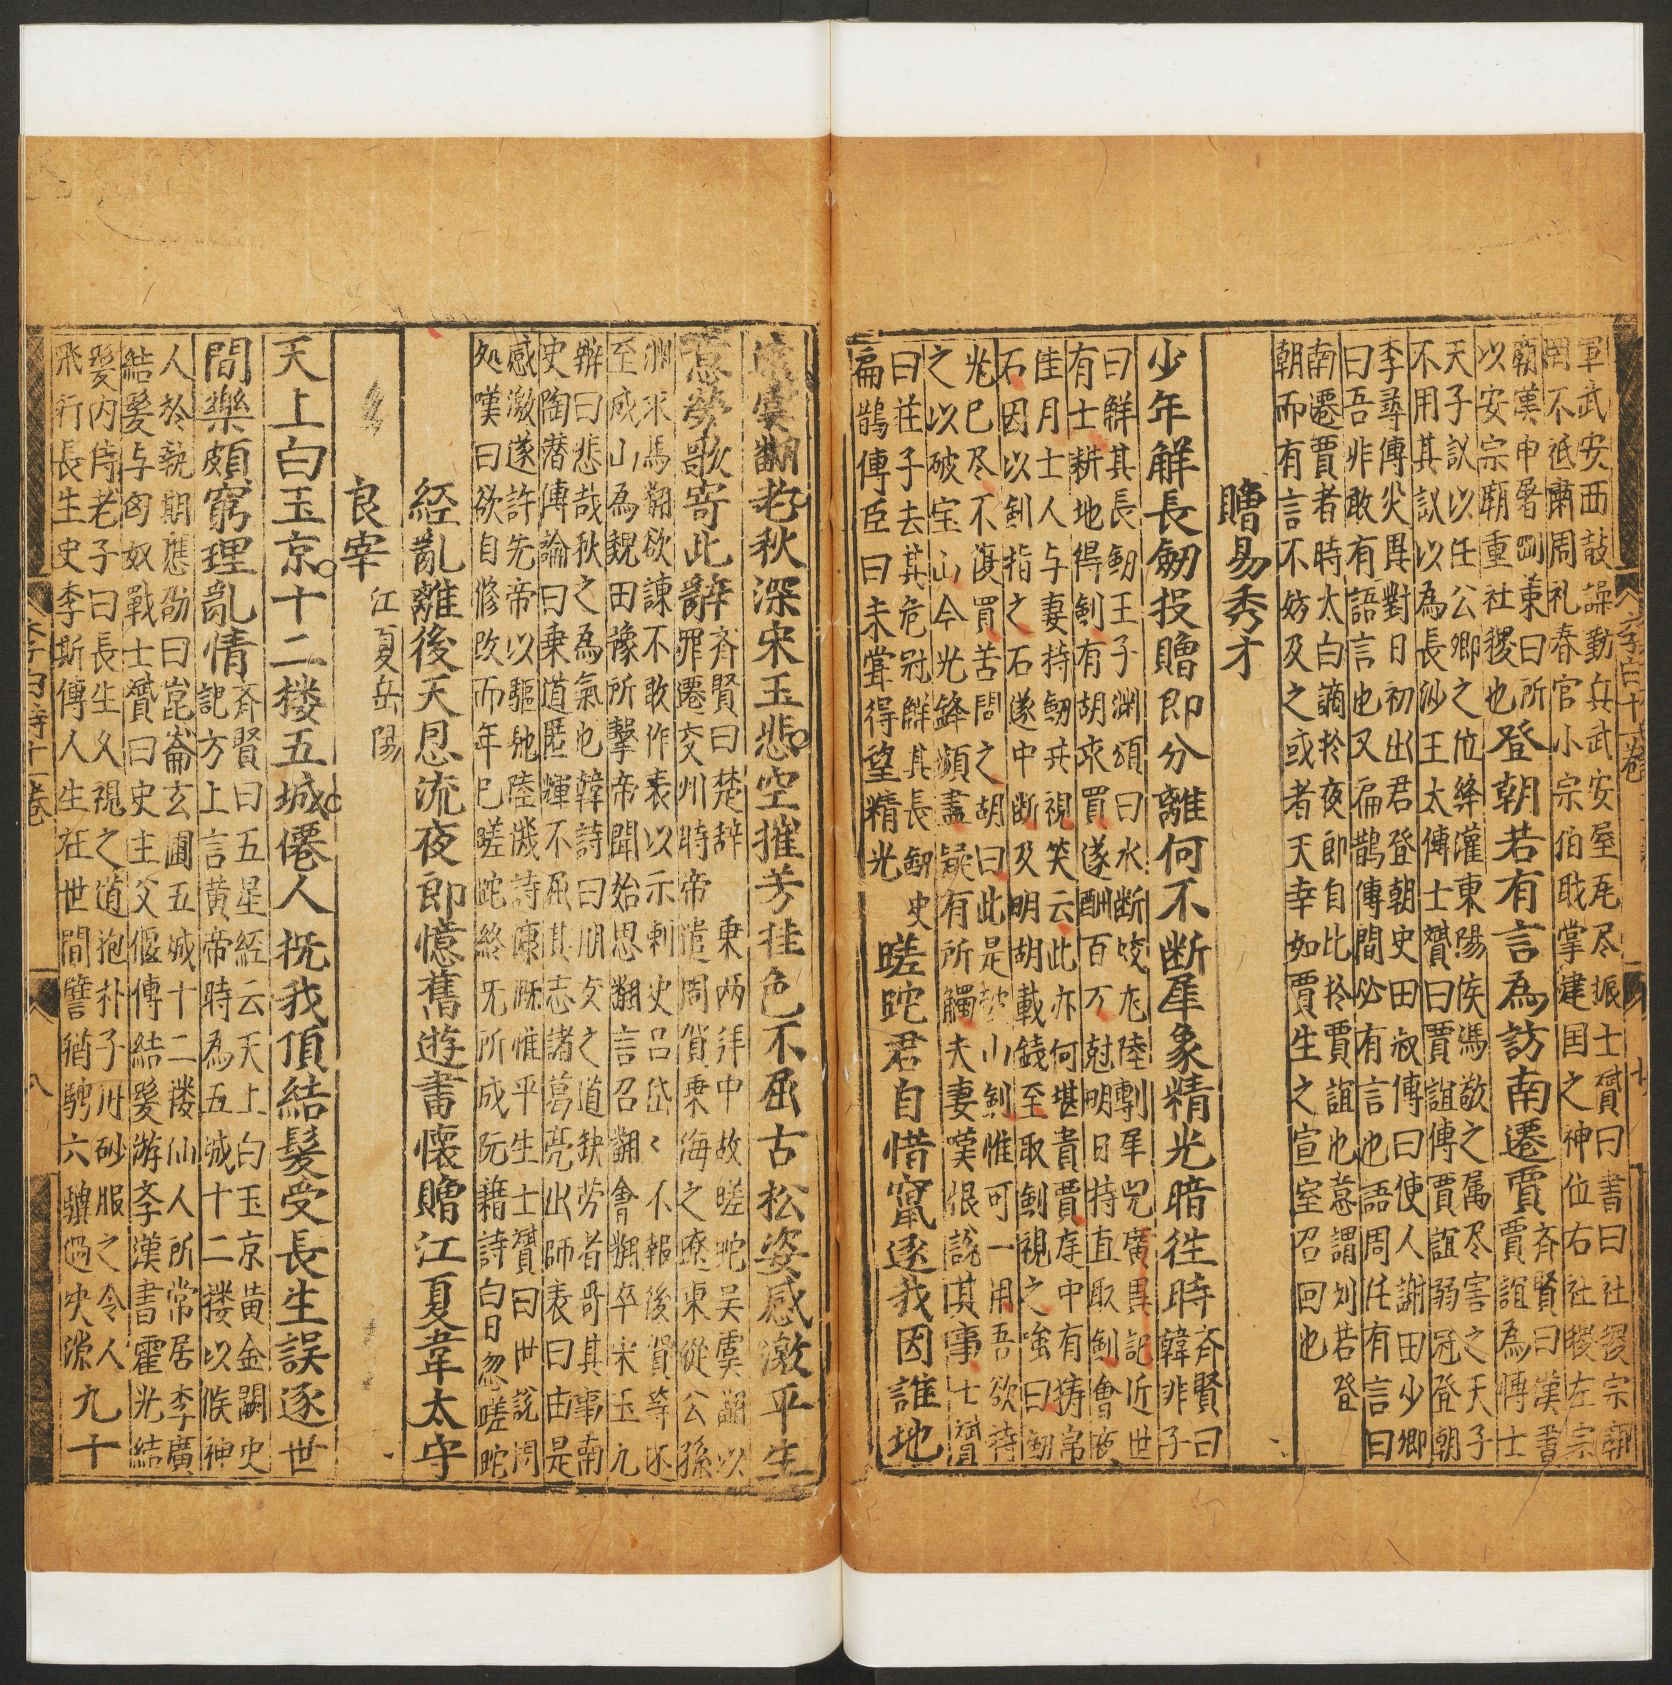 軍武安西鼓譟勤兵武安屋瓦尽振士贇曰書曰社稷宗廟
罔不祗肅周礼春官小宗伯職掌建国之神位右社稷左宗
廟漢申屠剛東曰所
以安宗廟重社稷也
登朝若有言為訪南遷賈
齐賢曰漢書
賈誼為博士
天子議以任公卿之位絳灌東陽侯馮敬之属尽害之天子
不用其議以為長沙王太傅士贇曰賈誼傳賈誼弱冠登朝
李尋傳災異對日初出君登朝史田叔傳曰使人謝田少卿
曰吾非敢有語言也又扁鵲傳間必有言也語周任有言曰
南遷賈者時太白謫扵夜即自比扵賈誼也意謂刘若登
朝而有言不妨及之或者天幸如賈生之宣室召回也
贈易秀才
少年解長劒投贈即分離何不断犀象精光暗徃時
齐賢曰
韓非子
曰解其長劒王子渊頌曰水断蛟龙陸剸犀兕廣異記近世
有士耕地得劍有胡求買遂酬百万尅明日持直取劍會夜
佳月士人与妻持劒共視笑云此亦何堪貴賈庭中有擣帛
石因以劍指之石遂中断及明胡載錢至取劍視之嗟曰劒
光已尽不復買苦問之胡曰此是破山劍惟可一用吾欲待
之以破宝山今光鋒頻盡疑有所觸夫妻嘆恨說其事士贇
曰荘子去其危冠觧其長劒史
扁鵲傳臣曰未甞得望精光
蹉跎君自惜竄逐我因誰地
遠虞翻老秋深宋玉悲空摧芳桂色不屈古松姿感激平生
意勞歌寄此辭
齐賢曰楚辞　乗两拜中故蹉跎吴虞翻以
罪遷交州時帝遣周賀乗海之遼東從公孫
渊求馬翻欲諫不敢作表以示刺史呂岱〻不報後賀等还
至成山為魏田豫所擊帝聞始思翻言召翻會翻卒宋玉九
辨曰悲哉秋之為氣也韓詩曰朋友之道缺劳者哥其事南
史陶潜傳論曰乗道匿輝不屈其志諸葛亮出師表曰由是
感激遂許先帝以驅馳陸機詩慷慨惟平生士贇曰世說周
処嘆曰欲自修改而年已蹉跎終无所成阮籍詩白日忽蹉跎
経亂離後天恩流夜郎憶舊遊書懷贈江夏韋太守
良宰
江夏岳陽
天上白玉京十二楼五城僊人抚我頂結髮受長生誤逐世
間樂頗窮理亂情
齐賢曰五星経云天上白玉京黃金闕史
記方上言黃帝時為五城十二楼以候神
人扵執期應劭曰崑崙玄圃五城十二楼仙人所常居李廣
結髮与匈奴戰士贇曰史主父偃傳結髮游斈漢書霍光結
髮内侍老子曰長生久視之道抱朴子丹砂服之令人
飛行長生史李斯傳人生在世間譬猶騁六驥過决隙
九十
李白詩十一卷
八